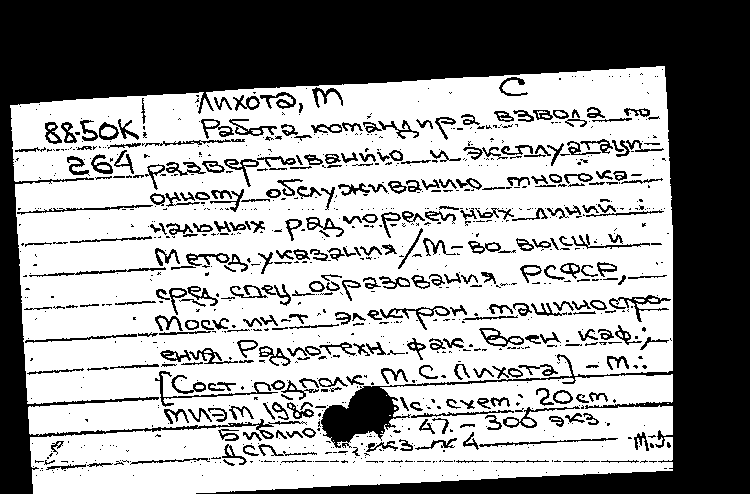 Лихота, М С
88-50К Работа командира взвода по
264 развертыванию и эксплуатаци-
онному обслуживанию многока-
нальных радиорелейных линий :
Метод. указания / М-во высш. и
сред. спец. образования РСФСР,
Моск. ин-т электрон. машинострo-
ения. Радиотехн. фак. Воен. каф.;
[Сост. подполк. М. С. Лихота] – М.:
МИЭМ, 198 с.: схем.; 20 cm.
Библио 47. – 300 экз.
ДСП. экз. № 4